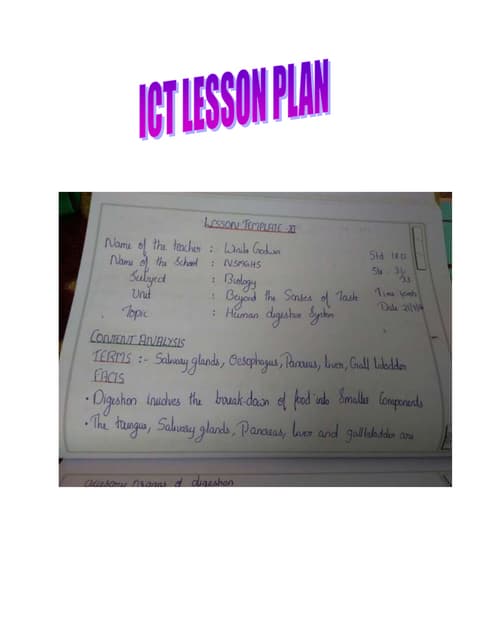 ICT LESSON PLAN
LESSON TEMPLATE - XI
Name of the teacher :
Name of the School : NSMGHS
Subject : Biology
Unit : Beyond the Senses of Task
Topic : Human digestive System
Std
Str
Time
Date
CONTENT ANALYSIS
TERMS :- Salivary glands, Oesophagus, Pancreas, liver, Gall bladder
FACTS
• Digestion involves the break-down of food into Smaller Components
• The toungue, Salivary glands, Pancreas, liver and gallbladder are
accessory organs of digestion